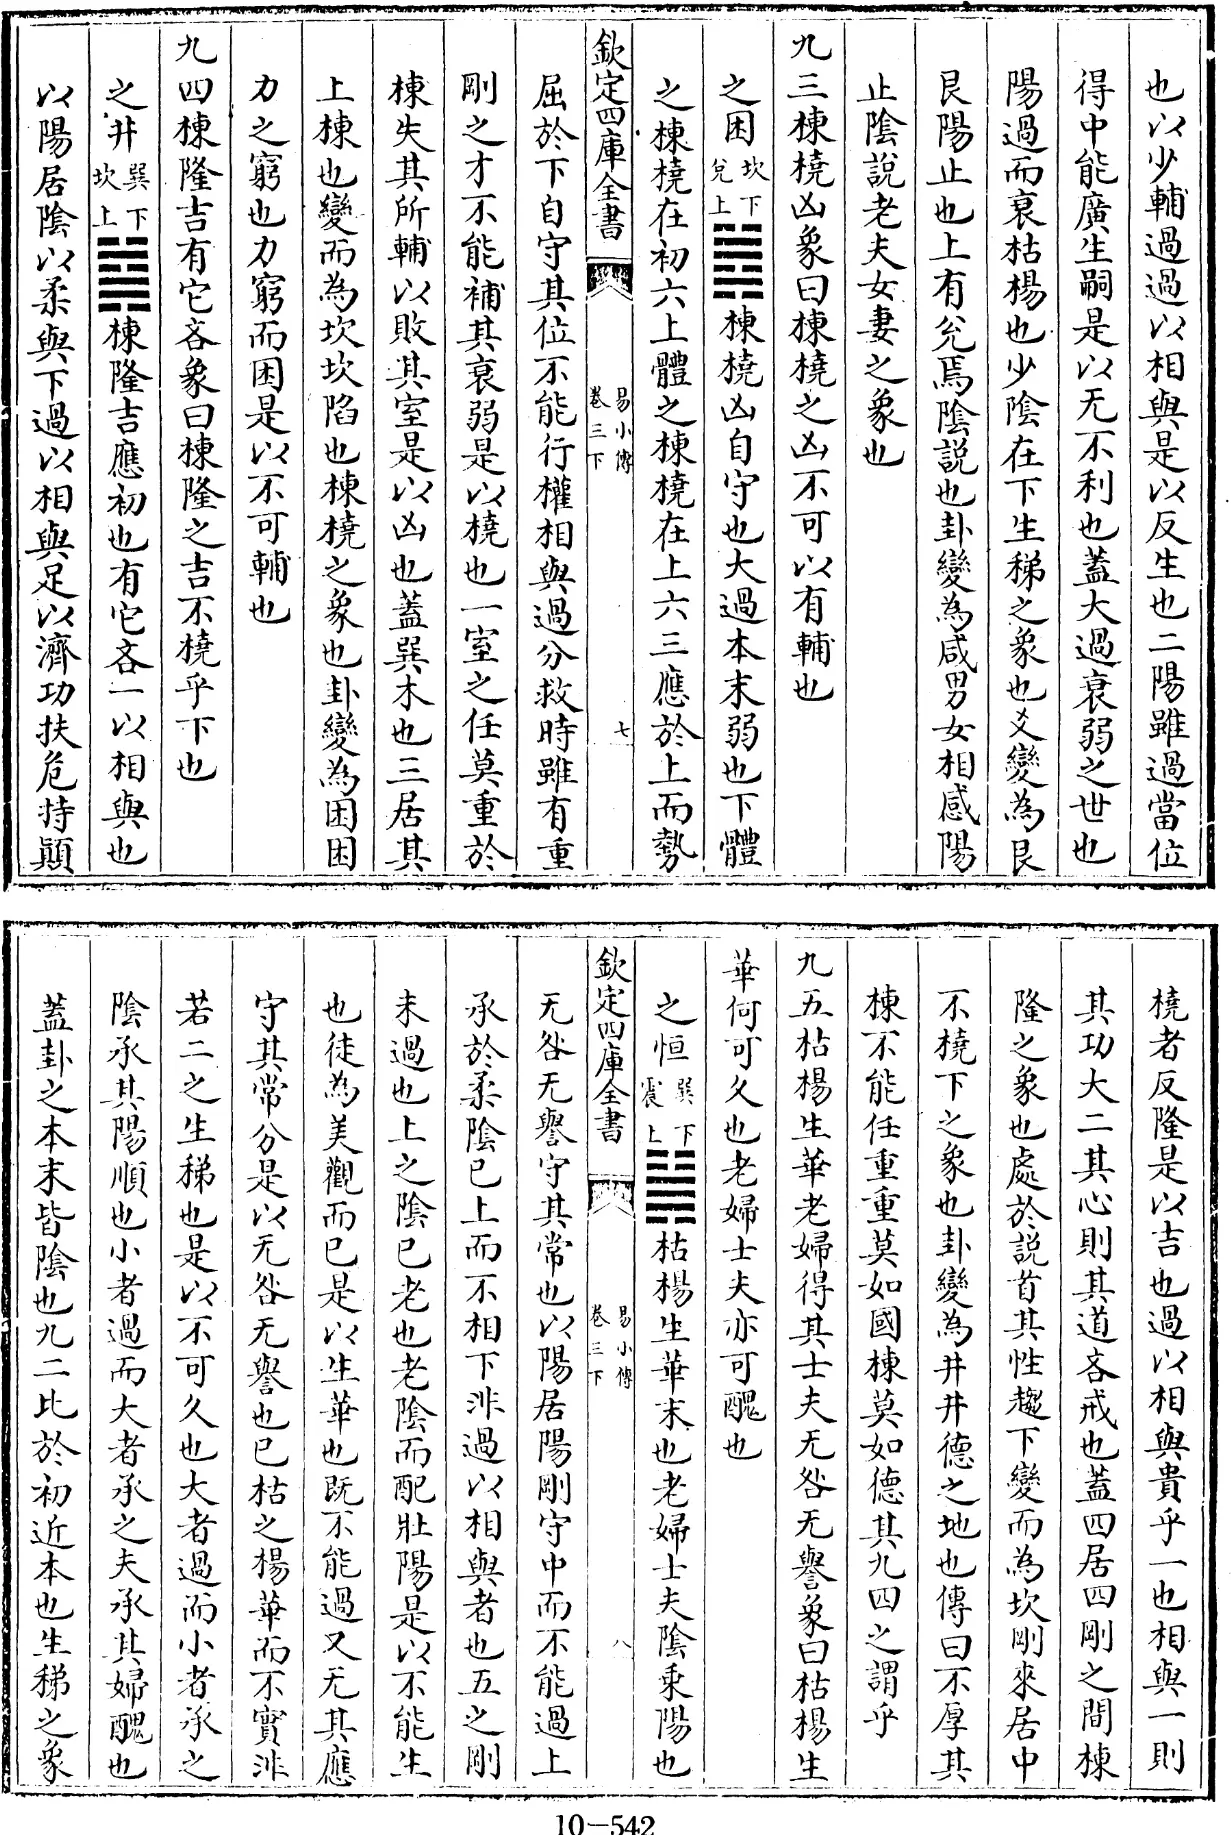 也以少輔過過以相與是以反生也二陽雖過當位
得中能廣生嗣是以无不利也蓋大過衰弱之世也
陽過而衰枯楊也少陰在下生稊之象也爻變為艮
艮陽止也上有兊焉陰説也卦變為咸男女相感陽
止陰説老夫女妻之象也
九三棟橈凶象曰棟橈之凶不可以有輔也
之困坎下兊上䷮棟橈凶自守也大過本末弱也下體
之棟橈在初六上體之棟橈在上六三應於上而勢
欽定四庫全書 易小傳卷三下 七
屈於下自守其位不能行權相與過分救時雖有重
剛之才不能補其衰弱是以橈也一室之任莫重於
棟失其所輔以敗其室是以凶也蓋巽木也三居其
上棟也變而為坎坎陷也棟橈之象也卦變為困困
力之窮也力窮而困是以不可輔也
九四棟隆吉有它吝象曰棟隆之吉不橈乎下也
之井巽下坎上䷯棟隆吉應初也有它吝一以相與也
以陽居陰以柔與下過以相與足以濟功扶危持顛
橈者反隆是以吉也過以相與貴乎一也相與一則
其功大二其心則其道吝戒也蓋四居四剛之間棟
隆之象也處於説首其性趨下變而為坎剛來居中
不橈下之象也卦變為井井德之地也傳曰不厚其
棟不能任重重莫如國棟莫如德其九四之謂乎
九五枯楊生華老婦得其士夫无咎无譽象曰枯楊生
華何可久也老婦士夫亦可醜也
之恒巽下震上䷟枯楊生華末也老婦士夫陰乗陽也
欽定四庫全書 易小傳卷三下 八
无咎无譽守其常也以陽居陽剛守中而不能過上
承於柔陰已上而不相下非過以相與者也五之剛
未過也上之陰已老也老陰而配壯陽是以不能生
也徒為美觀而已是以生華也既不能過又无其應
守其常分是以无咎无譽也已枯之楊華而不實非
若二之生稊也是以不可久也大者過而小者承之
陰承其陽順也小者過而大者承之夫承其婦醜也
蓋卦之本末皆陰也九二比於初近本也生稊之象
10—542